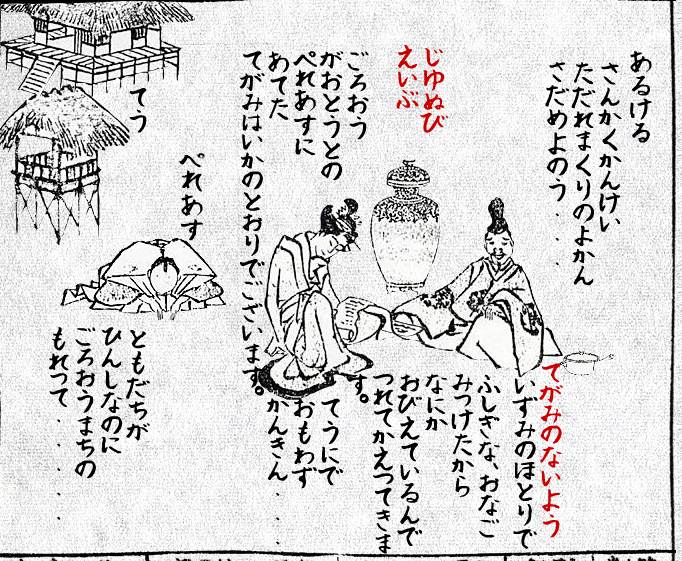 あるける
さんかくかんけい
ただれまくりのよかん
さだめよのう．．．．
じゆぬび
えいぶ
ごろおう
がおとうとの
ぺれあすに
あてた
てがみはいかのとおりでございます。
てがみのないよう
いずみのほとりで
ふしぎな、おなご
みつけたから
なにか
おびえているんで
つれてかえつてきま
す。
てうにで
おもわず
かんきん．．
てう
ぺれあす
ともだちが
ひんしなのに
ごろおうまちの
もれって．．．．